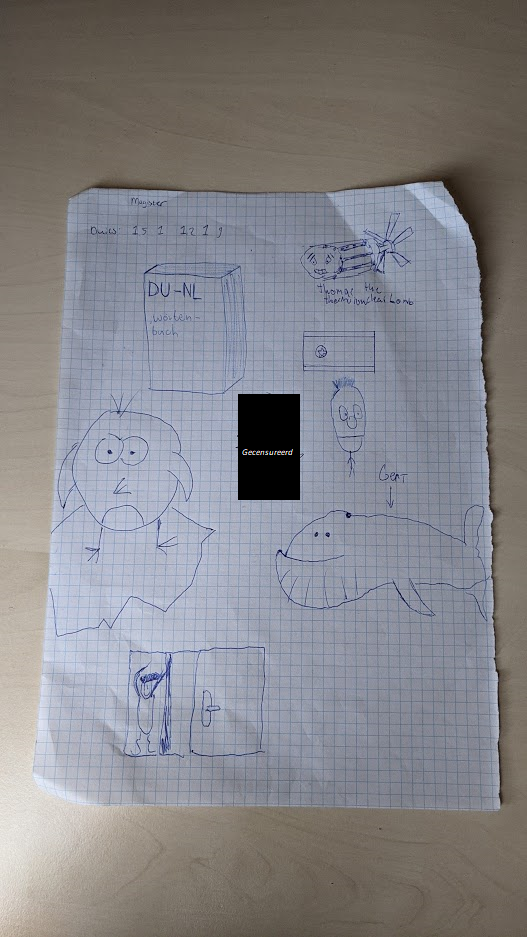 Magister
Duits 15 1 12 1 9
DU-NL
worten-
buch
Thomas the
thermonuclear bomb
Gecensureerd
Gert